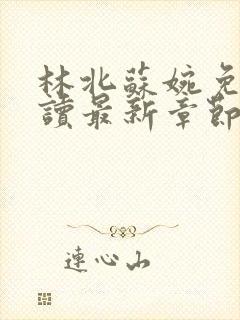 林北蘇婉免
讀最新章節
連心山